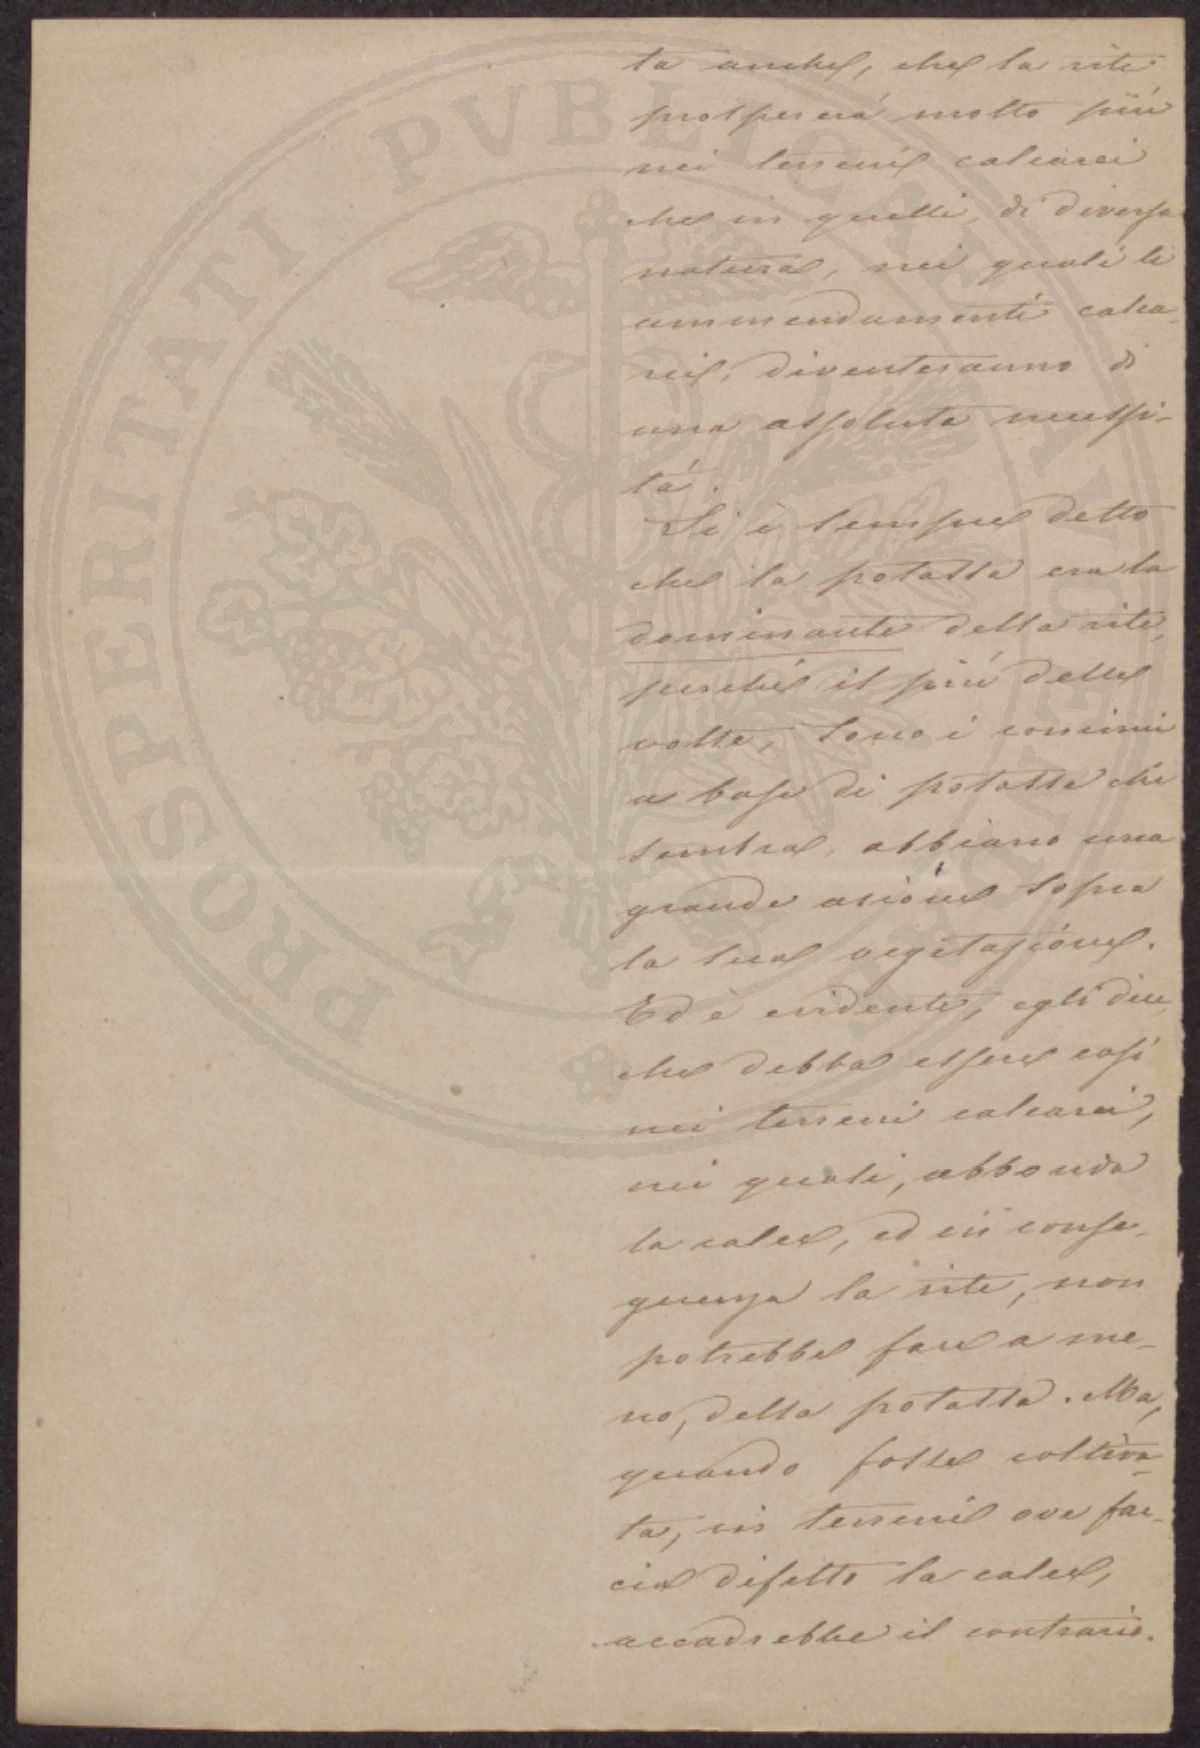 ta anche, che la vite
prospererá molto piú
nei terreni calcarei
che in quelli, di diversa
natura, nei quali li
ammendamenti calca-
rei, diventeranno di
una assoluta necessi-
tá.
Si è sempre detto
che la potassa era la
dominante della vite,
perché il piú delle
volte, sono i concimi
a base di potassa che
sembra, abbiano una
grande azione sopra
la sua vegetazione.
Ed è evidente, egli dice,
che debba essere cosí
nei terreni calcarei,
nei quali, abbonda
la calce, ed in conse-
guenza la vite, non
potrebbe fare a me-
no, della potassa. Ma,
quando fosse coltiva-
ta, in terreni ove fac-
cia difetto la calce,
accadrebbe il contrario.
PROSPERITATI PVBLICAE